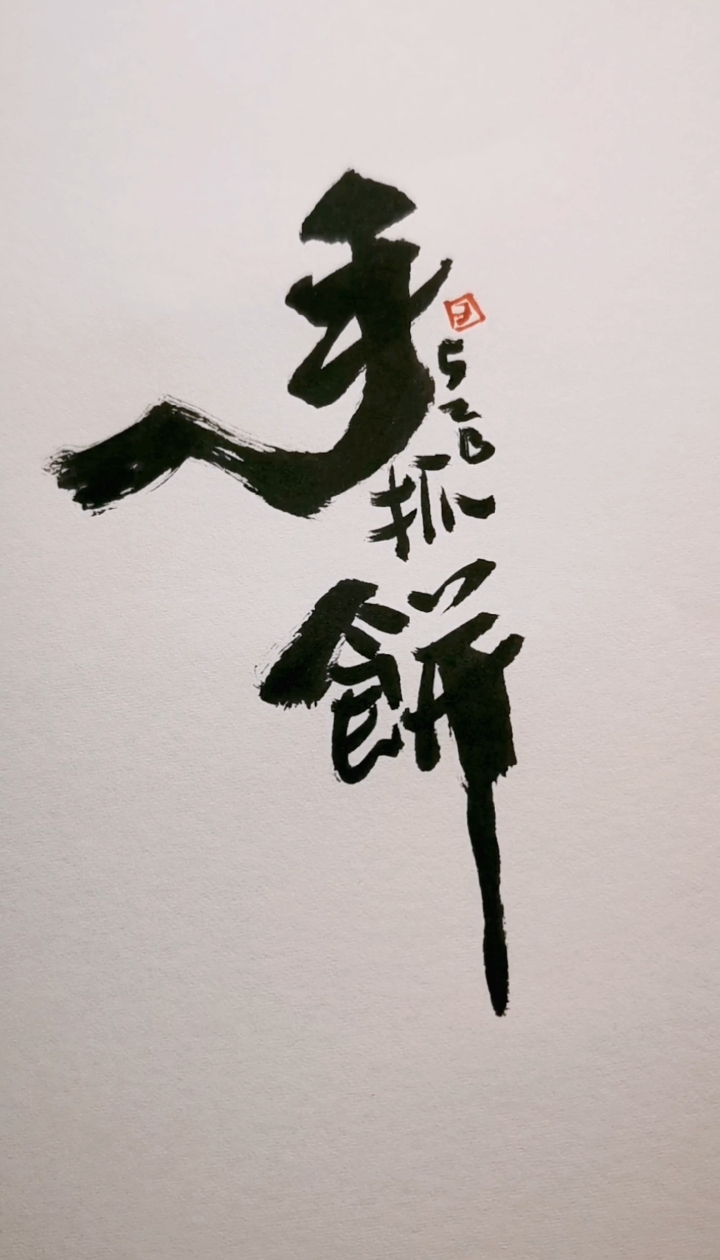 手抓餅
52B